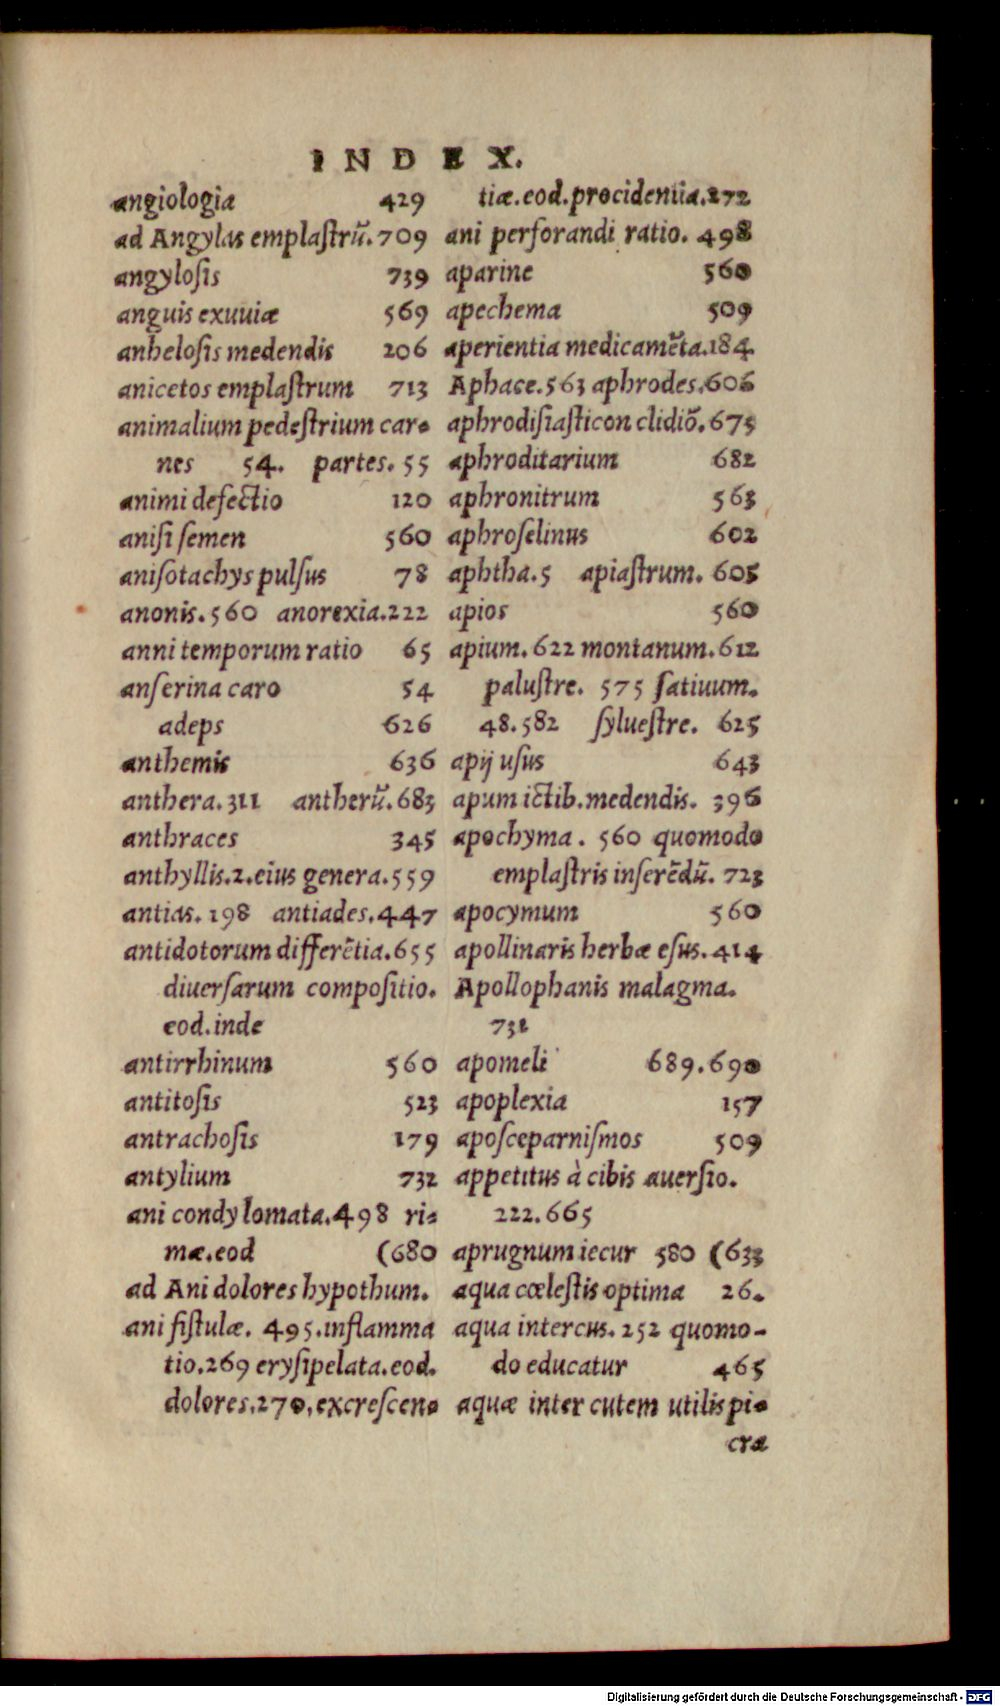 INDEX.
angiologia 429
ad Angylas emplaſtrũ. 709
angyloſis 739
anguis exuuiæ 569
anheloſis medendis 206
anicetos emplaſtrum 713
animalium pedeſtrium car-
nes 54. partes. 55
animi defectio 120
aniſi ſemen 560
aniſotachys pulſus 78
anonis. 560 anorexia. 222
anni temporum ratio 65
anſerina caro 54
adeps 626
anthemis 636
anthera. 311 antherũ. 683
anthraces 345
anthyllis. 2. eius genera. 559
antias. 198 antiades. 447
antidotorum differẽtia. 655
diuerſarum compoſitio.
eod. inde
antirrhinum 560
antitoſis 523
antrachoſis 179
antylium 732
ani condylomata. 498 ri-
mæ. eod (680
ad Ani dolores hypothum.
ani fiſtulæ. 495. inflamma
tio. 269 eryſipelata. eod.
dolores. 270, excreſcen-
tiæ. eod. procidentia. 272
ani perforandi ratio. 498
aparine 560
apechema 509
aperientia medicamẽta. 184
Aphace. 563 aphrodes. 606
aphrodiſiaſticon clidiõ. 675
aphroditarium 682
aphronitrum 563
aphroſelinus 602
aphtha. 5 apiaſtrum. 605
apios 560
apium. 622 montanum. 612
paluſtre. 575 ſatiuum.
48. 582 ſylueſtre. 625
apij uſus 643
apum ictib. medendis. 396
apochyma. 560 quomodo
emplaſtris inſerẽdũ. 723
apocymum 560
apollinaris herbæ eſus. 414
Apollophanis malagma.
731
apomeli 689. 690
apoplexia 157
apoſceparniſmos 509
appetitus à cibis auerſio.
222. 665
aprugnum iecur 580 (633
aqua cœleſtis optima 26.
aqua intercus. 252 quomo-
do educatur 465
aquæ inter cutem utilis pi-
cra
Digitalisierung gefördert durch die Deutsche Forschungsgemeinschaft - DFG